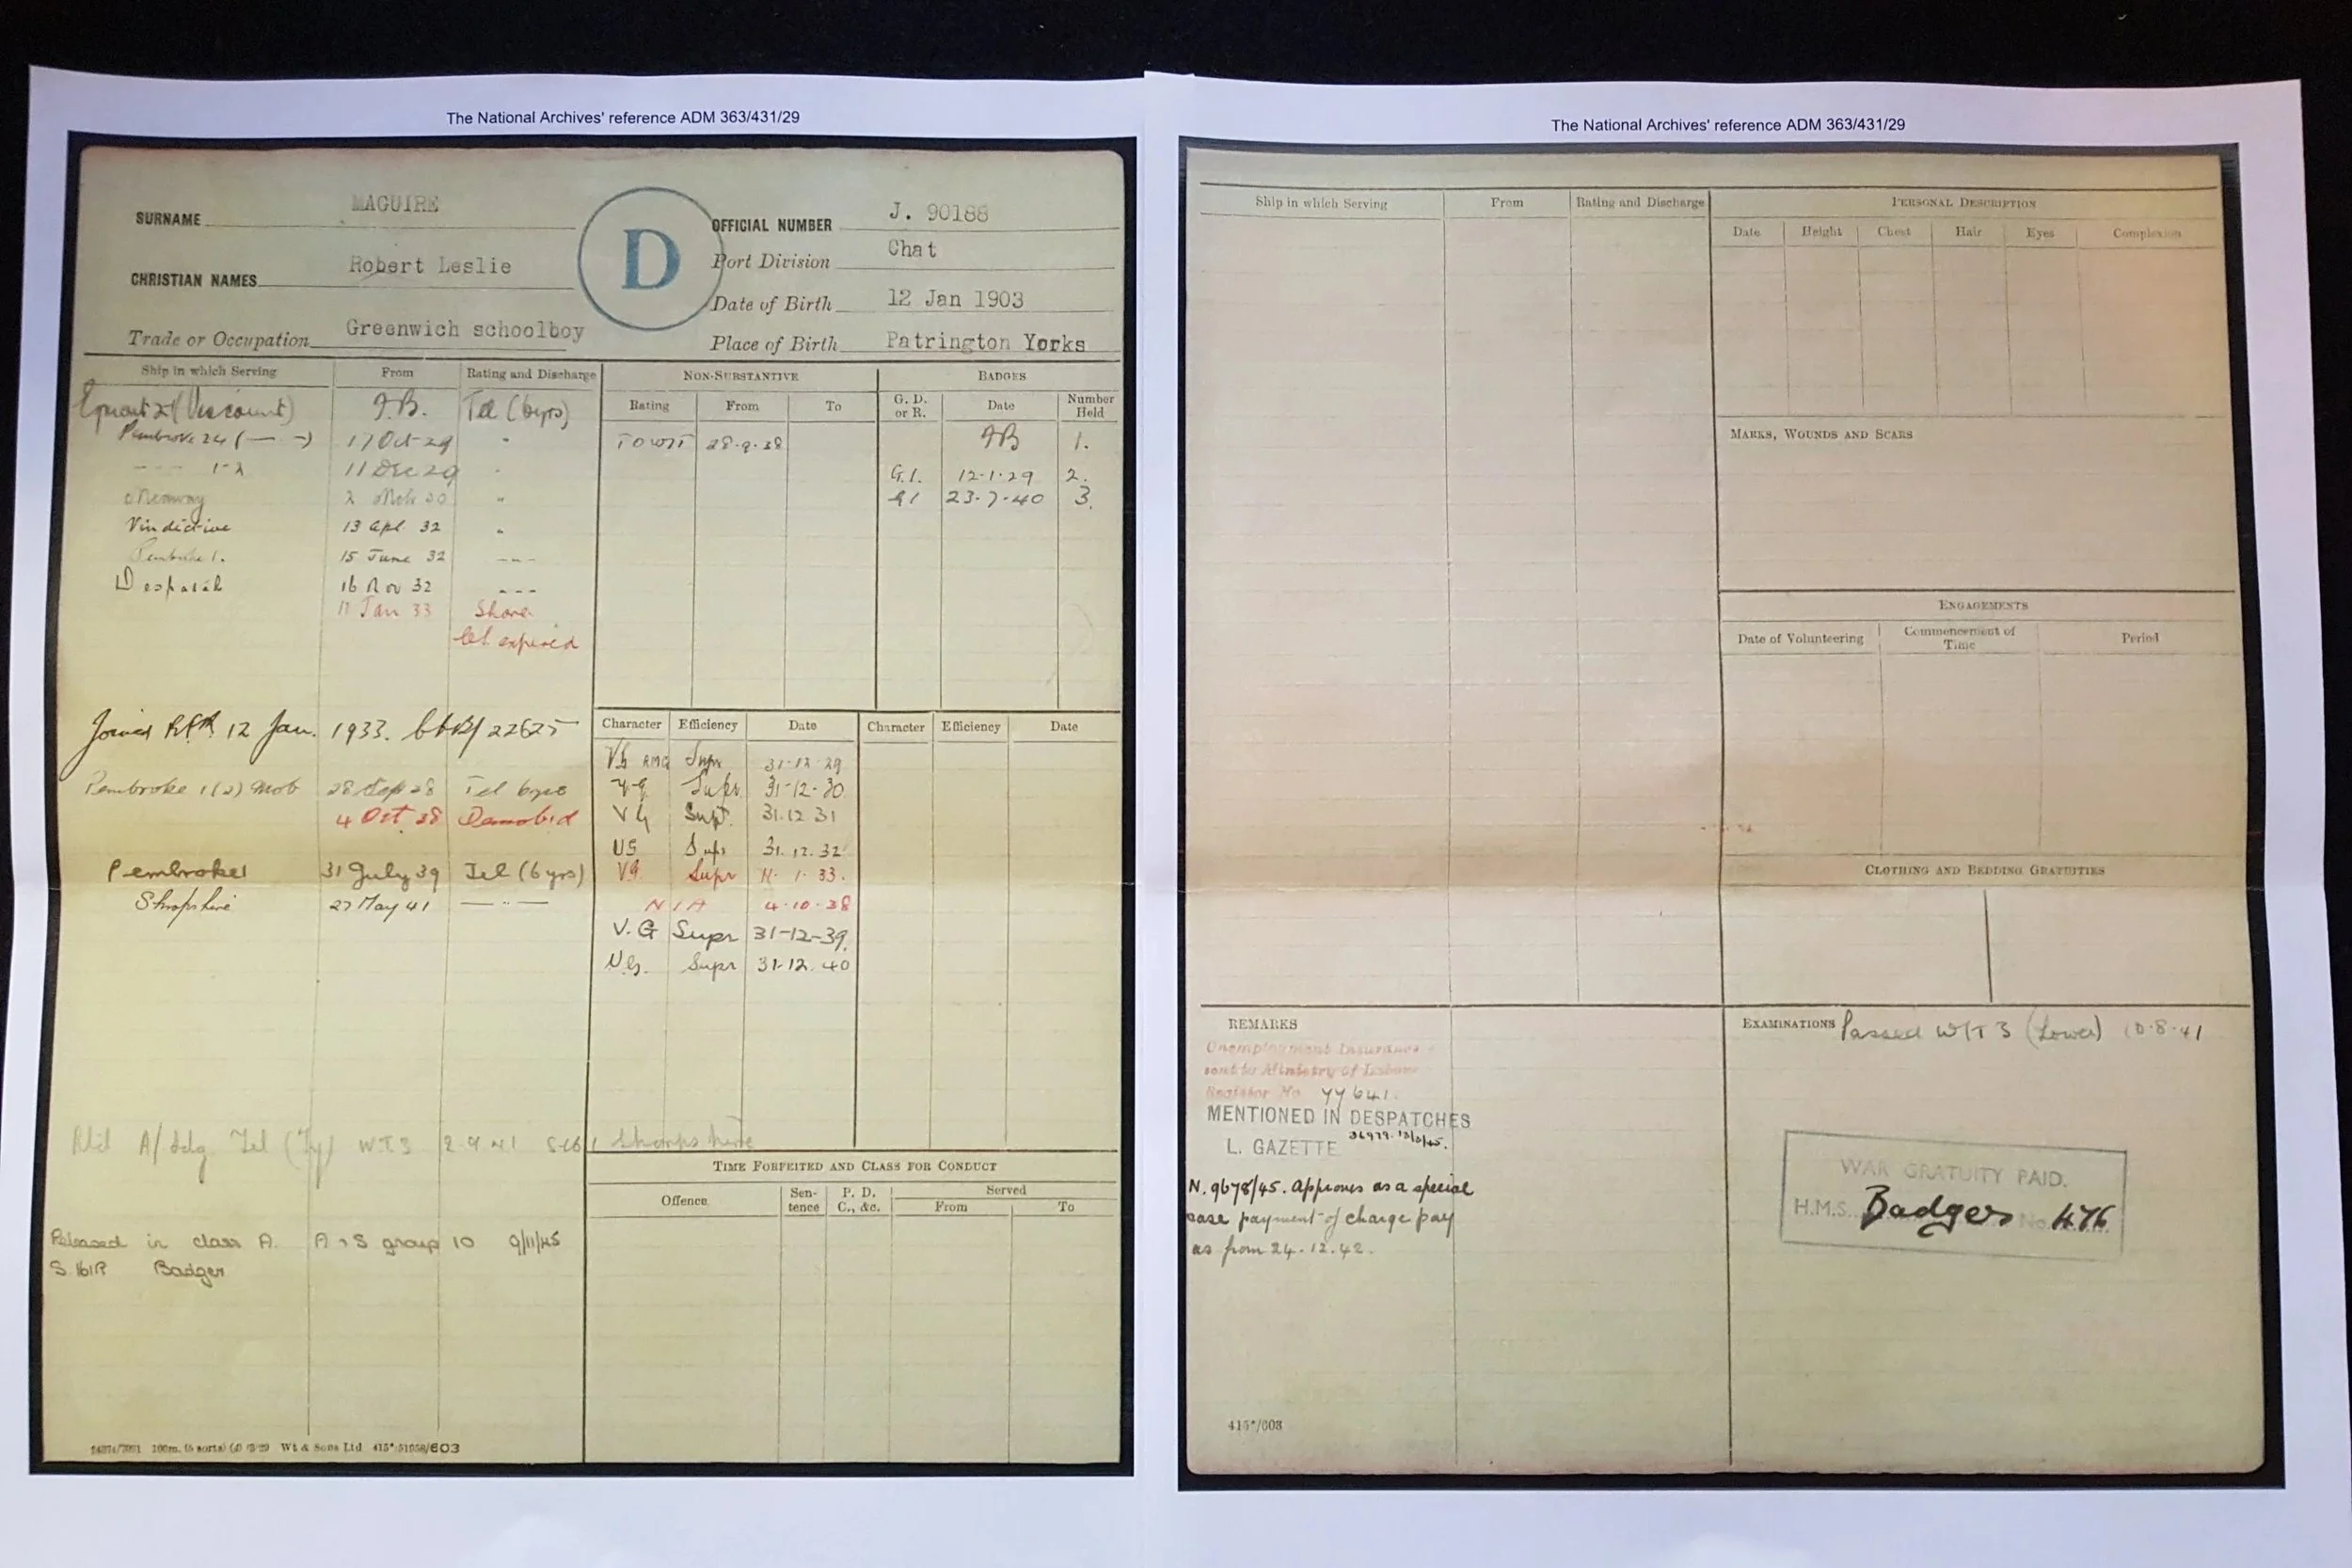 The National Archives' reference ADM 363/431/29
SURNAME MAGUIRE
CHRISTIAN NAMES Robert Leslie
Trade or Occupation Greenwich schoolboy
D
OFFICIAL NUMBER J. 90188
Port Division Chat
Date of Birth 12 Jan 1903
Place of Birth Patrington Yorks
Ship in which Serving From Rating and Discharge
(Viscount) Tel (6yrs)
Pembroke 24 ( — " — ) 17 Oct 29 "
11 Dec 29 "
"
Vindictive 13 Apl 32 "
Pembroke 1. 15 June 32 ---
Despatch 16 Nov 32 ---
11 Jan 33 Shore
expired
Joined RFR 12 Jan. 1933. 22625
Pembroke 1(2) Mob 28 Sep 38 Tel
4 Oct 38 Demobid
Pembroke 1 31 July 39 Tel (6 yrs)
Shropshire 27 May 41 — " —
A/Ldg Tel (Ty) W.T.3 2.9.41 Shropshire
Released in class A. A & S group 10 9/11/45
Badger
Wt & Sons Ltd
NON-SUBSTANTIVE
Rating From To
28.9.38
BADGES
G. D. or R. Date Number Held
1.
G.I. 12.1.29 2.
G1 23.7.40 3.
Character Efficiency Date Character Efficiency Date
VG RMG Supr 31-12-29
VG Supr 31-12-30
VG Supr 31.12.31
VG Supr 31.12.32
VG. Supr 11. 1. 33.
N / A 4.10.38
V.G Supr 31-12-39.
V.G. Supr 31.12.40
TIME FORFEITED AND CLASS FOR CONDUCT
Offence Sentence P. D. C., &c. Served
From To
The National Archives' reference ADM 363/431/29
Ship in which Serving From Rating and Discharge
PERSONAL DESCRIPTION
Date Height Chest Hair Eyes Complexion
MARKS, WOUNDS AND SCARS
ENGAGEMENTS
Date of Volunteering Commencement of Time Period
CLOTHING AND BEDDING GRATUITIES
REMARKS
Unemployment Insurance
sent to Ministry of Labour
Register No YY 641.
MENTIONED IN DESPATCHES
L. GAZETTE
N. 9678/45. Approves as a special
case payment of charge pay
as from 24.12.42.
EXAMINATIONS Passed W/T 3 (Lower) 10.8.41
WAR GRATUITY PAID.
H.M.S. Badger No. 476
415*/603